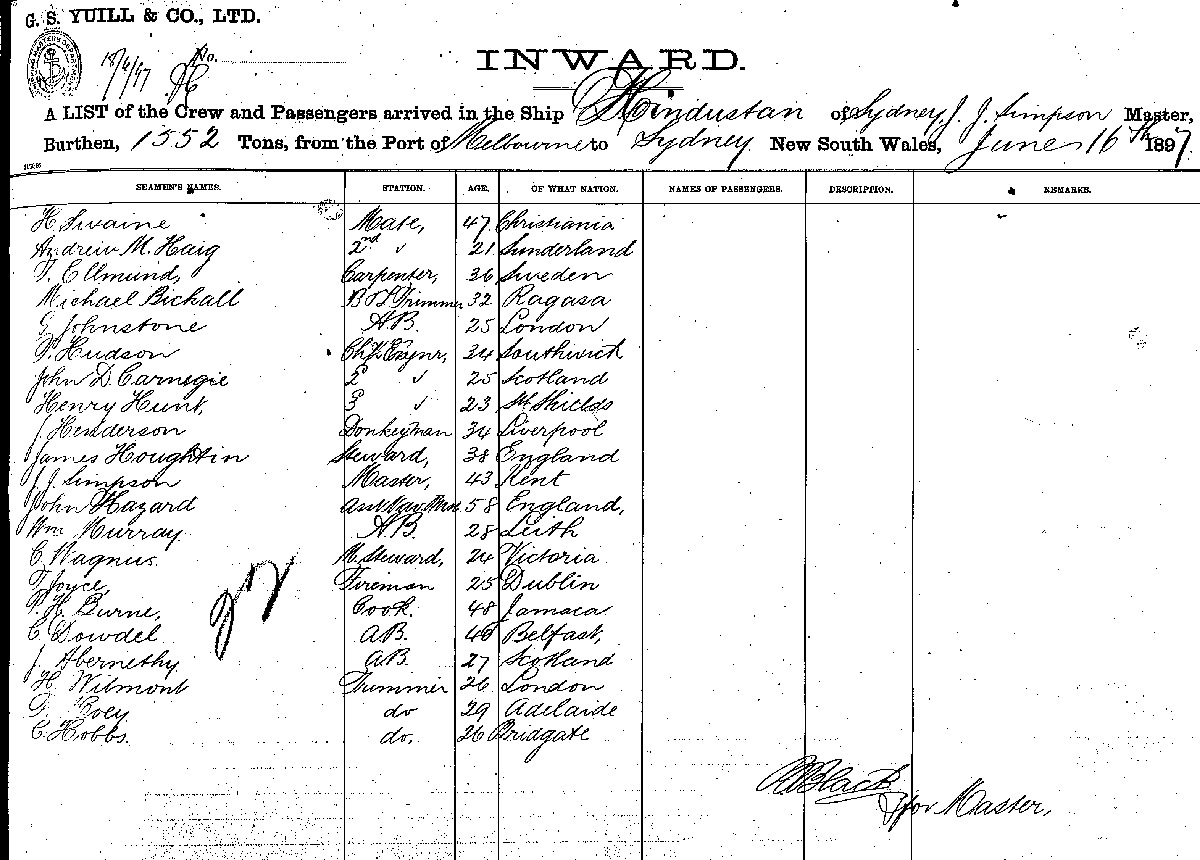 G. S. YUILL & CO., LTD.
18/6/97 No.
INWARD.
A LIST of the Crew and Passengers arrived in the Ship Hindustan of Sydney, J. J. Simpson Master,
Burthen, 1352 Tons, from the Port of Melbourne to Sydney New South Wales, June 16th 1897.
SEAMEN'S NAMES. STATION. AGE. OF WHAT NATION. NAMES OF PASSENGERS. DESCRIPTION. REMARKS.
H Swaine Mate, 47 Christiania
Andrew M. Haig 2nd " 21 Sunderland
Ellmund, Carpenter, 36 Sweden
Michael Bichall Trimmer 32 Ragasa
G Johnstone A.B. 25 London
T. Hudson Chf. Engnr, 34 Southwick
John D Carnegie 2 " 25 Scotland
Henry Hunt, 3 " 23 Sth Shields
J Henderson Donkeyman 34 Liverpool
James Houghtin Steward, 38 England
J. J. Simpson Master, 43 Kent
John Hazard 58 England,
Wm Murray A.B. 28 Leith
C. Wagnus. M. Steward, 24 Victoria
T Joyce, Fireman 25 Dublin
H. Burne, Cook. 48 Jamaca
C Dowdel A.B. 40 Belfast,
J. Abernethy A.B. 27 Scotland
H. Wilmont Trimmer 26 London
do 29 Adelaide
C. Hobbs. do. 26 Bridgate
Black
for Master,